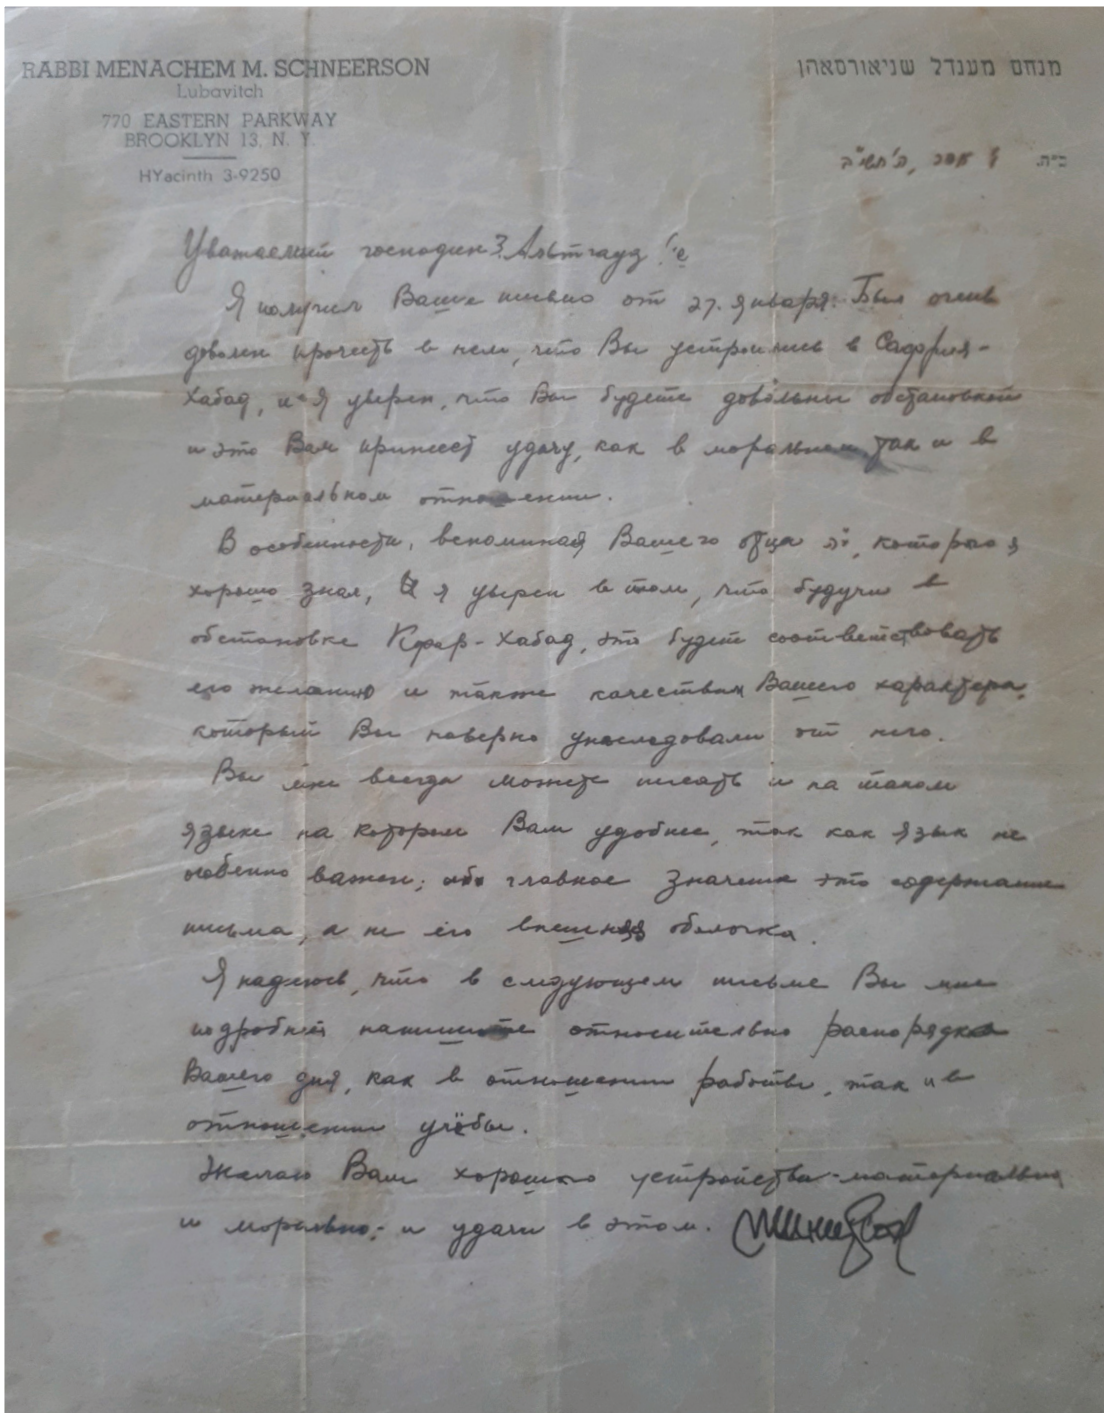 RABBI MENACHEM M. SCHNEERSON
Lubavitch
770 EASTERN PARKWAY
BROOKLYN 13, N. Y.
HYacinth 3-9250
מנחם מענדל שניאורסאהן
ב"ה.
Уважаемый господин Альтгауз
Я получил Ваше письмо от 27. января. Был очень
доволен прочесть в нем, что Вы устроились в Сафрия-
Хабад, и я уверен, что Вы будете довольны обстановкой
и это Вам принесет удачу, как в моральном так и в
материальном отношении.
В особенности, вспоминая Вашего отца которого я
хорошо знал, я уверен в том, что будучи в
обстановке Кфар-Хабад, это будет соответствовать
его желанию и также качествам Вашего характера,
который Вы наверно унаследовали от него.
Вы мне всегда можете писать и на таком
языке на котором Вам удобнее, так как язык не
особенно важен; главное значение это содержание
письма, а не его внешняя оболочка.
Я надеюсь, что в следующем письме Вы мне
подробней напишите относительно распорядка
Вашего дня, как в отношении работы, так и в
отношении учёбы.
Желаю Вам хорошего устройства-материально
и морально- и удачи в этом.